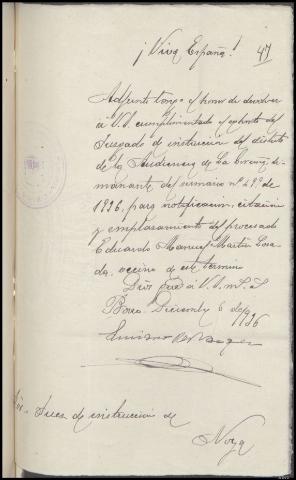 ¡Viva España!
47
Adjunto tengo el honor de devolver
á V.S. cumplimentado el exhorto del
Juzgado de instrucción del distrito
de la Audiencia de La Coruña, di-
manante del sumario nº 29 de
1936, para notificación, citación
y emplazamiento del procesado
Eduardo Manuel Martin Loza-
da, vecino de este termino
Dios gue á V.S. m. a.
Diciembre 6 de 1936
Sr. Juez de instrucción de
Noya